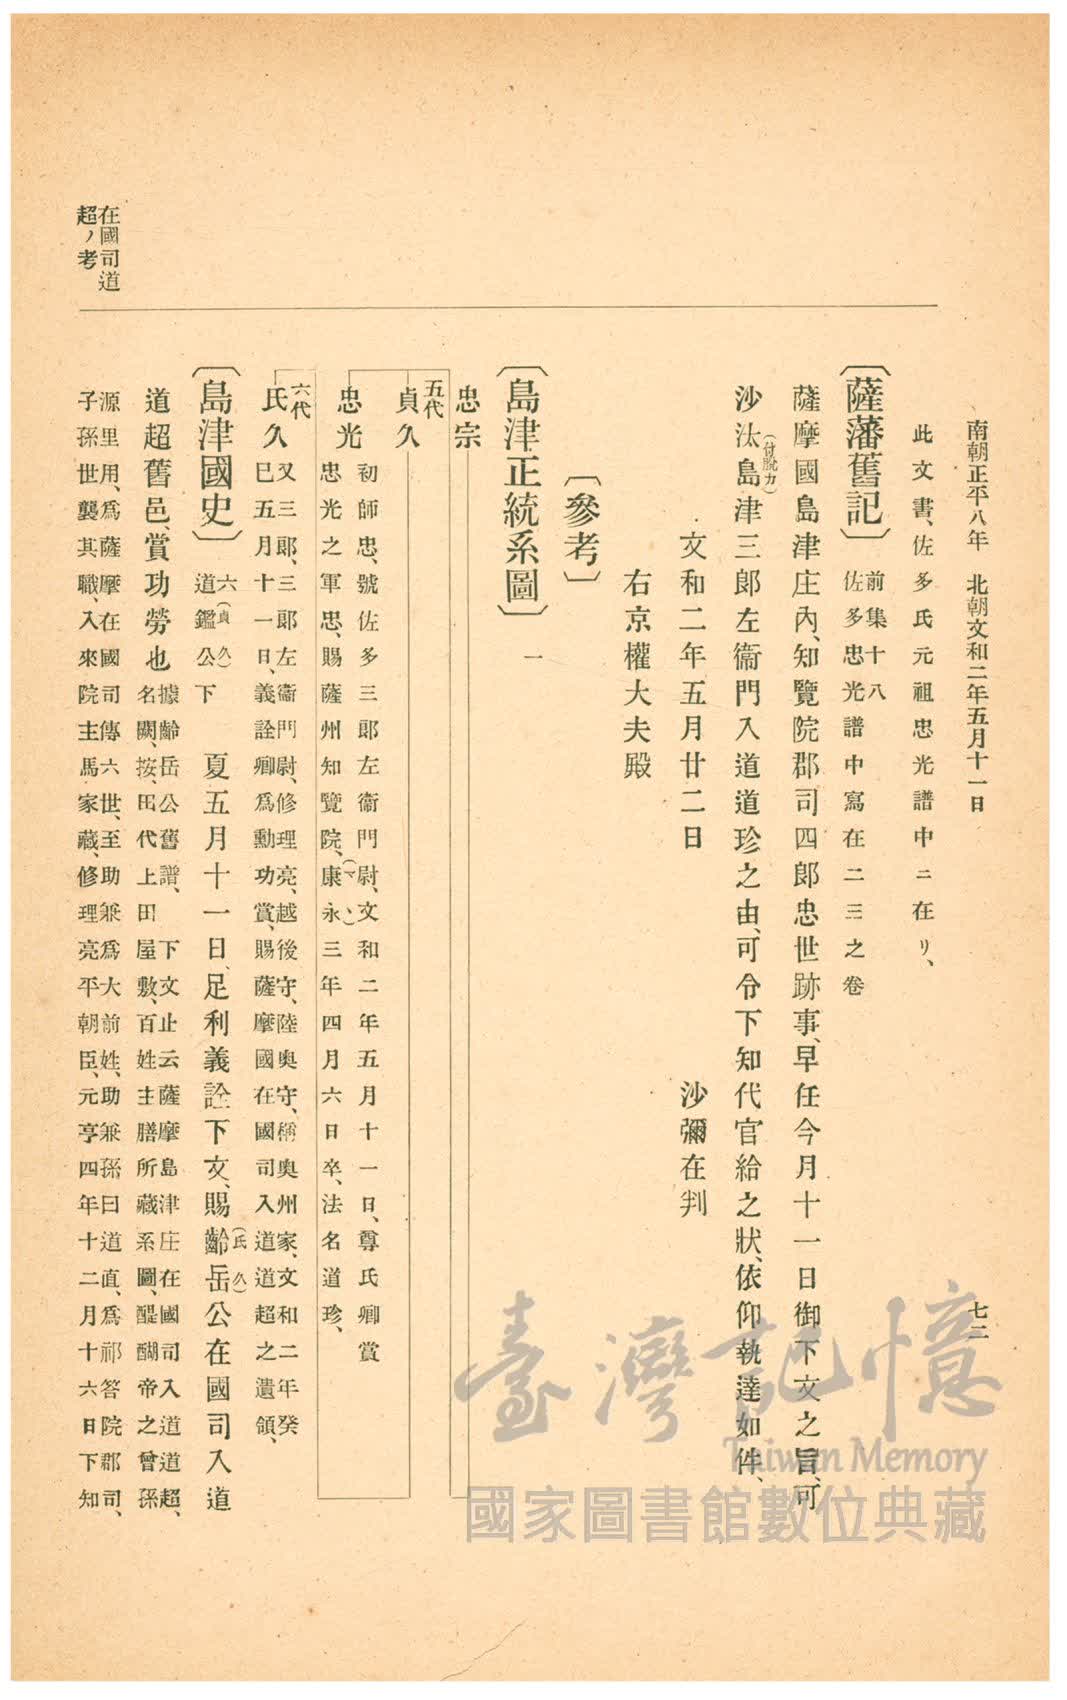 南朝正平八年 北朝文和二年五月十一日
七二
此文書、佐多氏元祖忠光譜中ニ在リ、
〔薩藩舊記〕 前集十八
佐多忠光譜中寫在二三之卷
薩摩國島津庄內、知覽院郡司四郎忠世跡事、早任今月十一日御下文之旨、可
沙汰(付脫カ)島津三郎左衞門入道道珍之由、可令下知代官給之狀、依仰執達如件、
文和二年五月廿二日 沙彌在判
右京權大夫殿
〔參考〕
〔島津正統系圖〕 一
忠宗
五代
貞久
忠光
初師忠、號佐多三郎左衞門尉、文和二年五月十一日、尊氏卿賞
忠光之軍忠、賜薩州知覽院、康永(マヽ)三年四月六日卒、法名道珍、
六代
氏久
又三郎、三郎左衞門尉、修理亮、越後守、陸奧守、稱奧州家、文和二年癸
巳五月十一日、義詮卿爲勳功賞、賜薩摩國在國司入道道超之遺領、
〔島津國史〕 六
道鑑(貞久)公下
夏五月十一日、足利義詮下文、賜齡岳(氏久)公在國司入道
道超舊邑、賞功勞也
據齡岳公舊譜、下文止云薩摩島津庄在國司入道道超、
名闕、按、田代上田屋敷、百姓主膳所藏系圖、醍醐帝之曾孫
源里用、爲薩摩在國司傳六世、至助兼爲大前姓、助兼孫曰道直、爲祁答院郡司、
子孫世襲其職、入來院主馬家藏、修理亮平朝臣、元亨四年十二月十六日下知
在國司道
超ノ考
臺灣記憶
Taiwan Memory
國家圖書館數位典藏